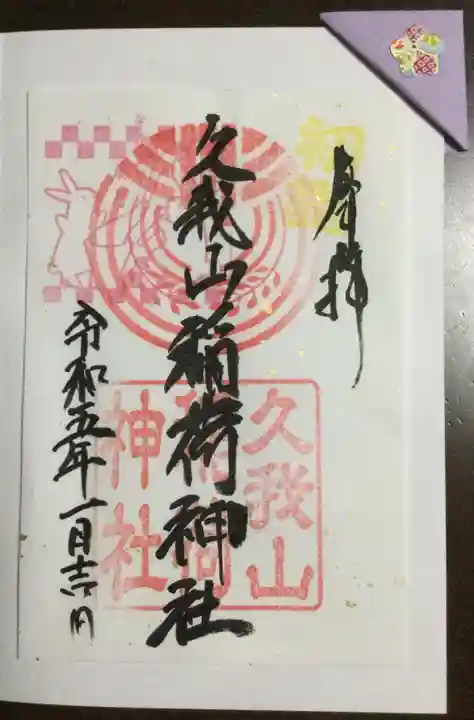 奉拝
久我山稲荷神社
令和五年一月吉日
久我山
稲荷
神社